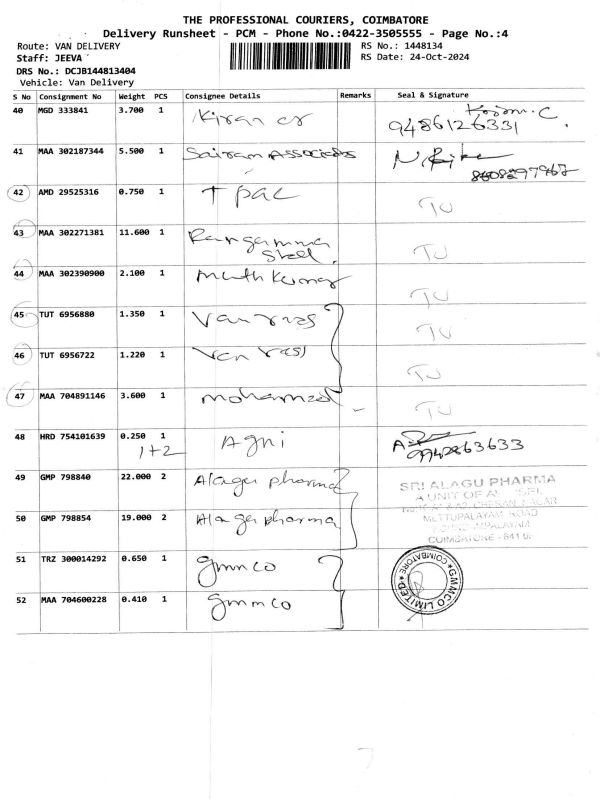 THE PROFESSIONAL COURIERS, COIMBATORE
Delivery Runsheet - PCM - Phone No.:0422-3505555 - Page No.:4
Route: VAN DELIVERY RS No.: 1448134
Staff: JEEVA RS Date: 24-Oct-2024
DRS No.: DCJB144813404
Vehicle: Van Delivery
S No Consignment No Weight PCS Consignee Details Remarks Seal & Signature
40 MGD 333841 3.700 1 Kiran cr
9486126331
41 MAA 302187344 5.500 1 Sairam Associates
8608297962
42 AMD 29525316 0.750 1 T pac TU
43 MAA 302271381 11.600 1 Rangamma TU
Steel
44 MAA 302390900 2.100 1 Muthkumar TU
45 TUT 6956880 1.350 1 TU
46 TUT 6956722 1.220 1 TU
47 MAA 704891146 3.600 1 mohamed TU
48 HRD 754101639 0.250 1 Agni
1+2 9942863633
49 GMP 798840 22.000 2 Alager pharma
SRI ALAGU PHARMA
A UNIT OF
50 GMP 798854 19.000 2 Alager pharma
METTUPALAYAM ROAD
COIMBATORE - 641
51 TRZ 300014292 0.650 1 gmmco
52 MAA 704600228 0.410 1 gmmco
GMMCO LIMITED
COIMBATORE